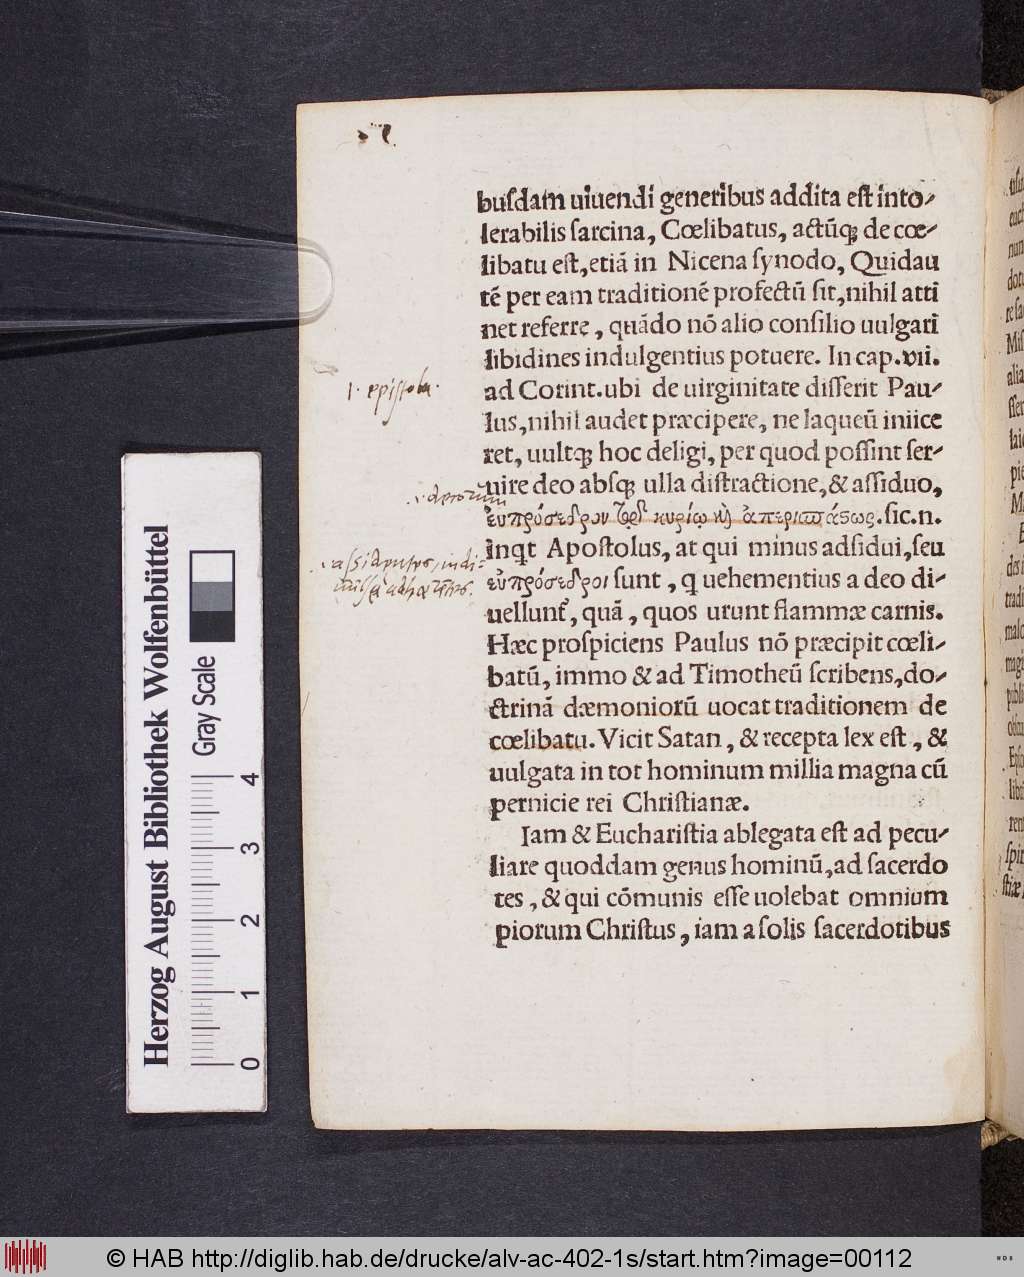 buſdam uiuendi generibus addita eſt into-
lerabilis ſarcina, Cœlibatus, actūq; de cœ-
libatu eſt, etiā in Nicena ſynodo, Quidau
tē per eam traditionē profectū ſit, nihil atti
net referre, quādo nō alio conſilio uulgari
libidines indulgentius potuere. In cap. vii.
1. epistola.
ad Corint. ubi de uirginitate diſſerit Pau-
lus, nihil audet præcipere, ne laqueū iniice
ret, uultq; hoc deligi, per quod poſſint ſer-
uire deo abſq; ulla diſtractione, & aſſiduo,
εὐπρόσεδρον κυρίῳ ἀπερισπάςως. ſic. n.
inqt Apoſtolus, at qui minus adſidui, ſeu
εὐπρόσεδροι ſunt, q uehementius a deo di-
uellunt, quā, quos urunt flammæ carnis.
Hæc proſpiciens Paulus nō præcipit cœli-
batū, immo & ad Timotheū ſcribens, do-
ctrinā dæmoniorū uocat traditionem de
cœlibatu. Vicit Satan, & recepta lex eſt, &
uulgata in tot hominum millia magna cū
pernicie rei Chriſtianæ.
Iam & Euchariſtia ablegata eſt ad pecu-
liare quoddam genus hominū, ad ſacerdo
tes, & qui cōmunis eſſe uolebat omnium
piorum Chriſtus, iam a ſolis ſacerdotibus
Herzog August Bibliothek Wolfenbüttel
Gray Scale
0 1 2 3 4
© HAB http://diglib.hab.de/drucke/alv-ac-402-1s/start.htm?image=00112